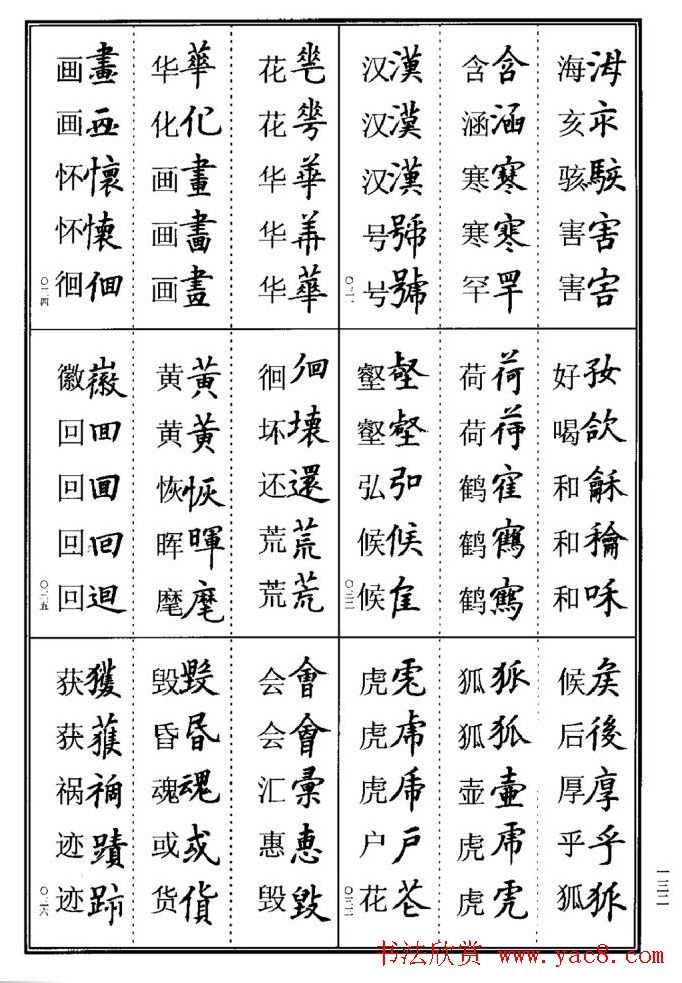 海海亥亥骇駭害害害害
含含涵涵寒寒寒寒罕罕
汉漢汉漢汉漢号號号號
好好喝欱和龢和和咊
荷荷荷荷鹤鹤鶴鹤鶴
壑壑壑壑弘弘候候候
候矦后後厚厚乎乎狐狐
狐狐狐狐壶壺虎虎虎虎
虎虎虎虎虎虎户戶花花
花花花花华華华華华華
华華化化画畫画畫画畫
画畫画画怀懷怀懷徊徊
徊徊坏壞还還荒荒荒荒
黄黃黄黃恢恢晖暉麾麾
徽徽回回回回回回回迴
会會会會汇彙惠惠毁毀
毁毀昏昏魂魂或或货貨
获獲获獲祸禍迹蹟迹跡
一三二
书法欣赏 www.yac8.com